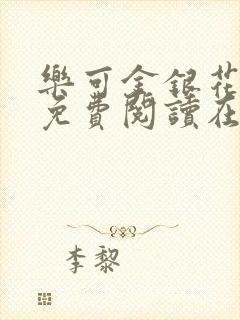 樂可金銀花
免費閱讀在
李黎